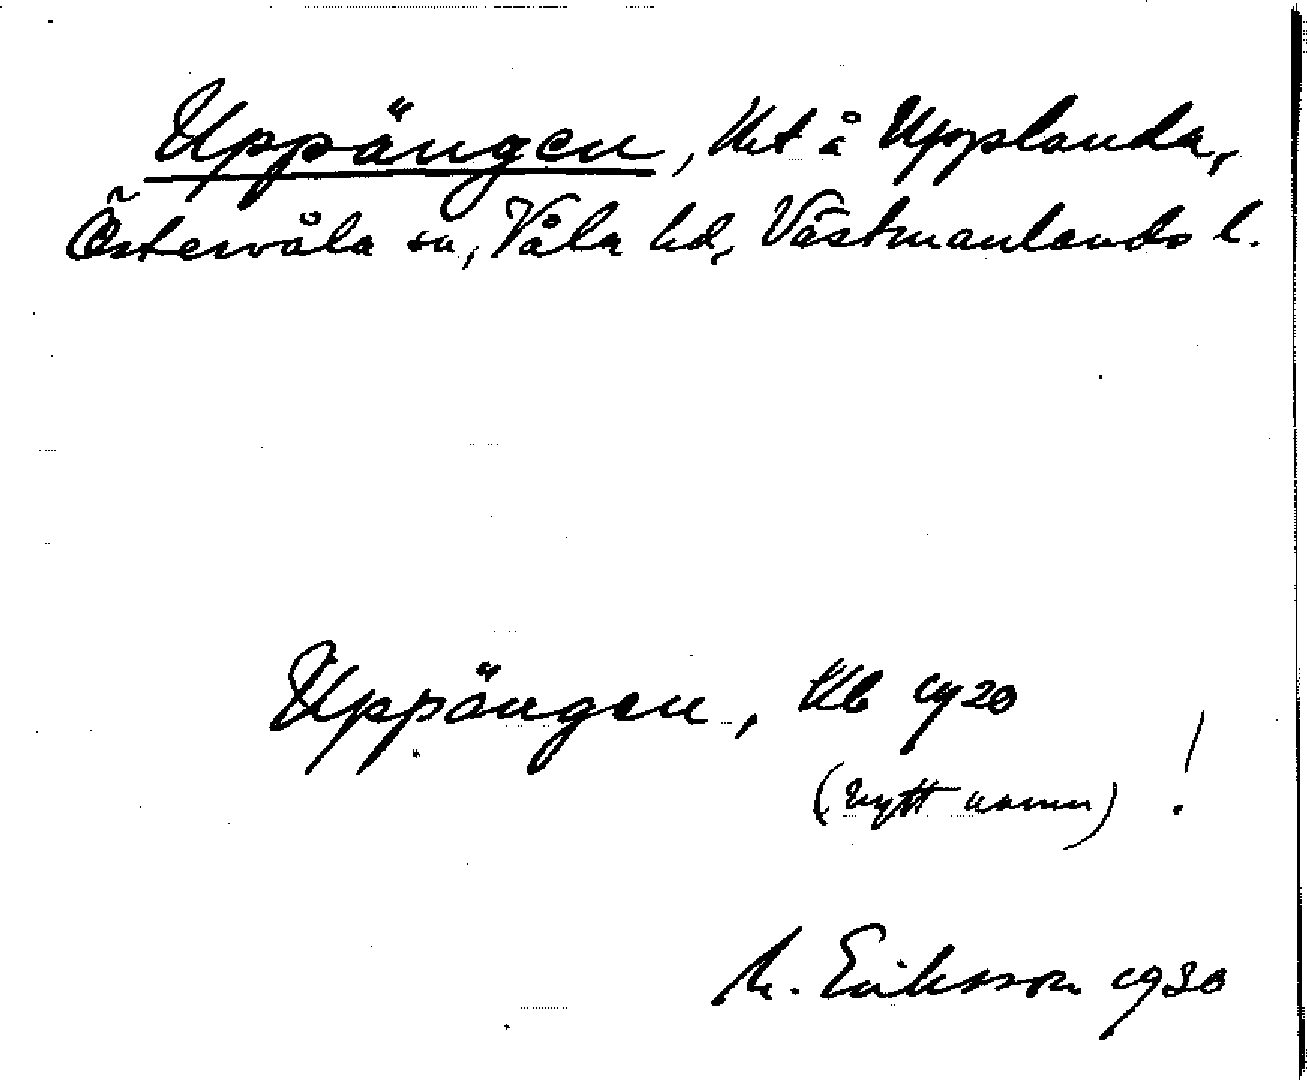 Uppängen, lht å Upplanda,
Östervåla sn, Våla hd, Västmanlands l.
Uppängen, Kb 1920
(nytt namn) !
M. Eriksson 1930